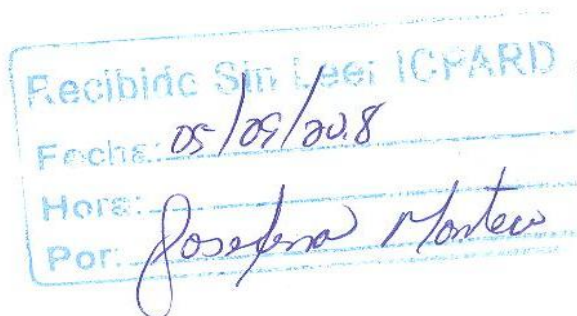 Recibido Sin Leer ICPARD
Fecha: 05/09/2018
Hora:
Por: Josefina Montero